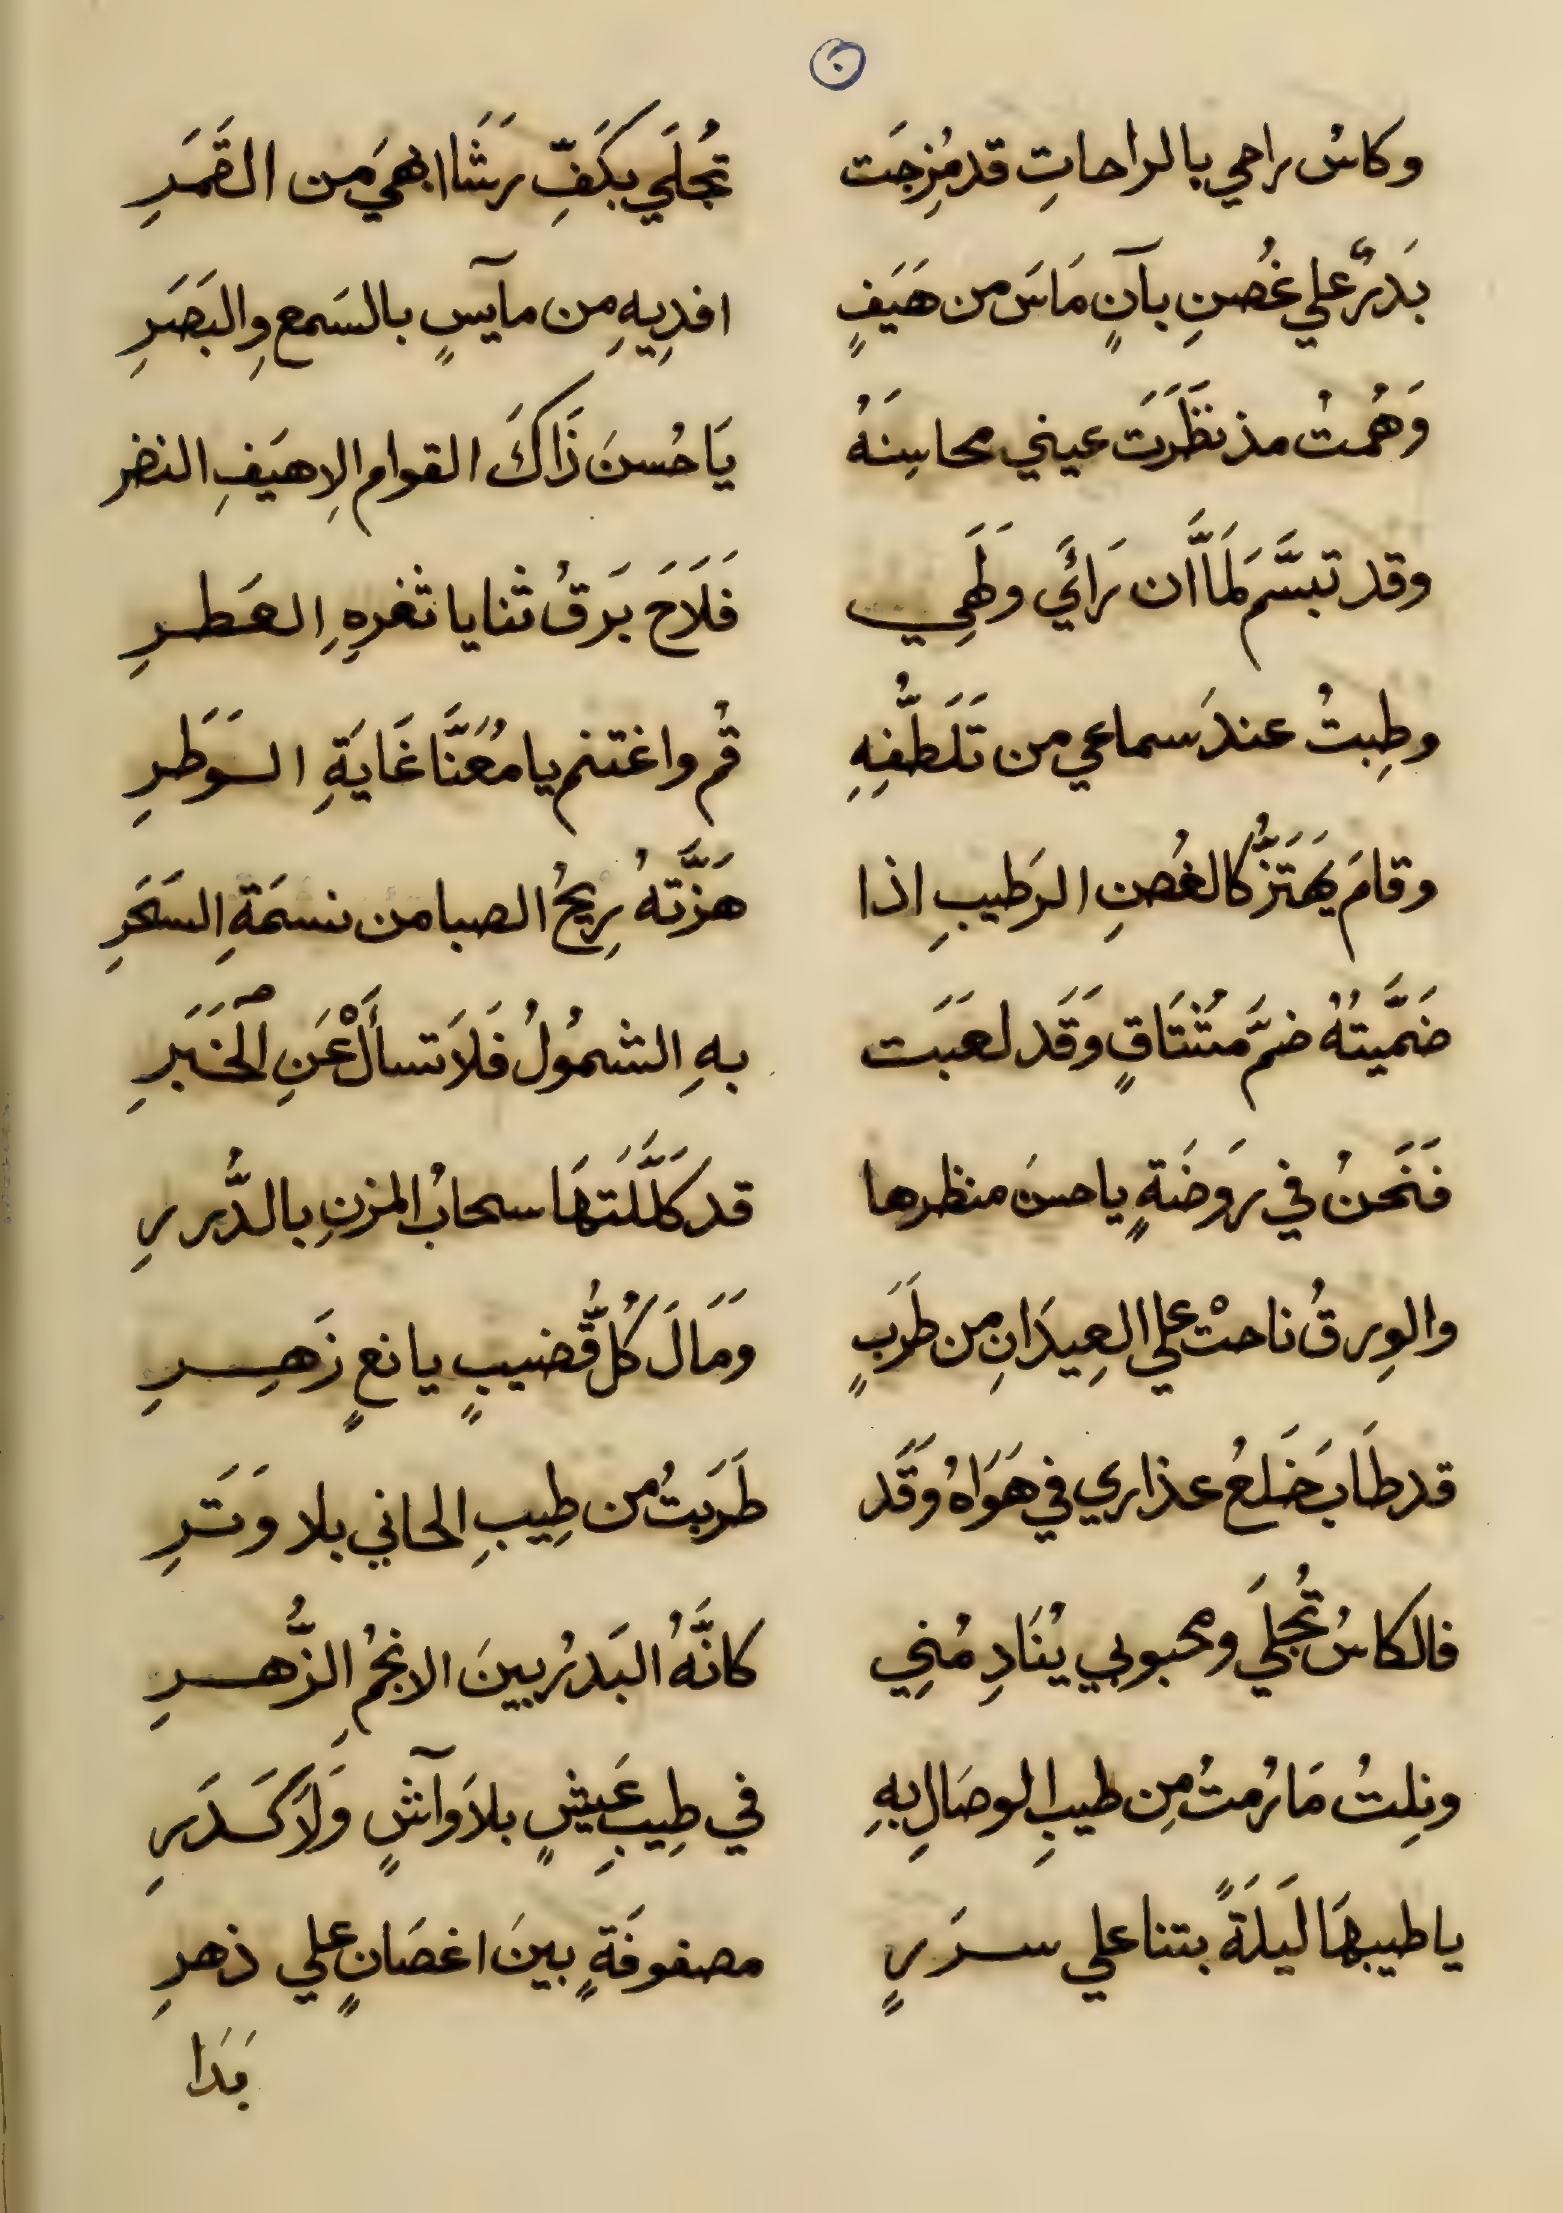 وكاسُ راحي بالراحاتِ قد مُزِجَت تُجلَي بكَفِّ رَشَا ابهيَ مَن القَمَرِ
بَدرٌ علي غُصنِ بآنٍ مَاسَ من هَيَفٍ افدِيهِ مِن مآيسٍ بالسَمعِ والبَصَرِ
وَهُمتُ مذ نظَرَت عيني محاسِنَهُ يَا حُسنَ ذَاكَ القوامِ الاهيَفِ النضرِ
وقد تبسَّم لَمَّا ان رَائَي وَلَهِي فَلَاحَ بَرقُ ثنايا ثغرهِ العَطرِ
وطِبتُ عندَ سماعي من تَلَطُّفِهِ قُم واغتنم يا مُعَنَّا غَايَةِ الوَطَرِ
وقامَ يَهتَزُّ كالغُصنِ الرَطيبِ اذا هَزَّتهُ رِيحُ الصبا من نسمَةِ السَحَرِ
ضَمَّيتهُ ضمَّ مُشتَاقٍ وَقَد لعبَت بهِ الشمُولُ فَلَا تسأَلْ عَنِ الخَبَرِ
فَنَحنُ في رَوضَةٍ يا حسنَ منظرها قد كَلَّلَتهَا سحابُ المزنِ بالدُّررِ
والوِرقُ ناحتْ علي العِيدَانِ مِن طَرَبٍ وَمَالَ كُلُّ قضيبٍ يانعٍ زَهِرِ
قد طَابَ خَلعُ عذاري في هَوَاهُ وَقَد طَرَبتُ من طِيبِ الحاني بلا وَتَرِ
فالكاسُ تُجلَي ومحبوبي يُنَادِمُنِي كانَّهُ البَدرُ بينَ الانجُمِ الزُّهرِ
ونِلتُ مَا رُمتُ مِن طيبِ الوصَالِ بهِ في طِيبِ عَيشٍ بلا وَآشٍ وَلَا كَدَرِ
يا طيبهَا لَيلَةً بتنا علي سررٍ مصفوفَةٍ بينَ اغصَانٍ علي ذهرِ
بَدَا